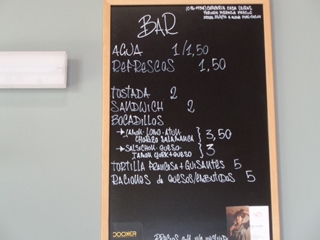 BAR
AGUA 1/1,50
REFRESCOS 1,50
TOSTADA 2
SANDWICH 2
BOCADILLOS
→ JAMON-LOMO-ATUN-
CHORIZO SALAMANCA } 3,50
→ SALSICHON-QUESO
JAMON YORK+QUESO } 3
TORTILLA FRANCESA+GUISANTES 5
RACIONES DE QUESOS/EMBUTIDOS 5